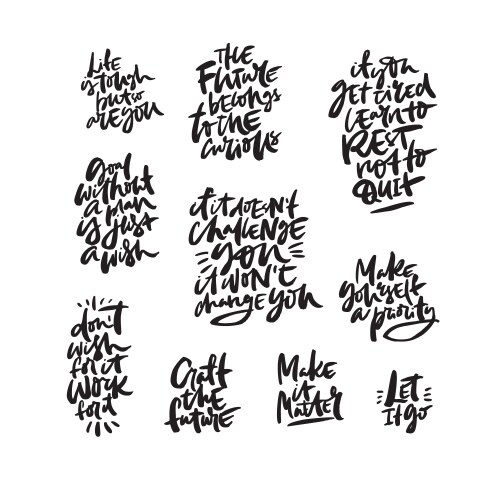 Life
is tough
but so
are you
THE
FUTURE
belongs
to the
curious
if you
GET tired
LEARN to
REST
not to
QUIT
Goal
without
a plan
is just
a wish
if it doesn't
CHALLENGE
you
it WON'T
change you
Make
yourself
a priority
don't
wish
for it
WORK
for it
Craft
the
future
Make
it
Matter
LET
IT go